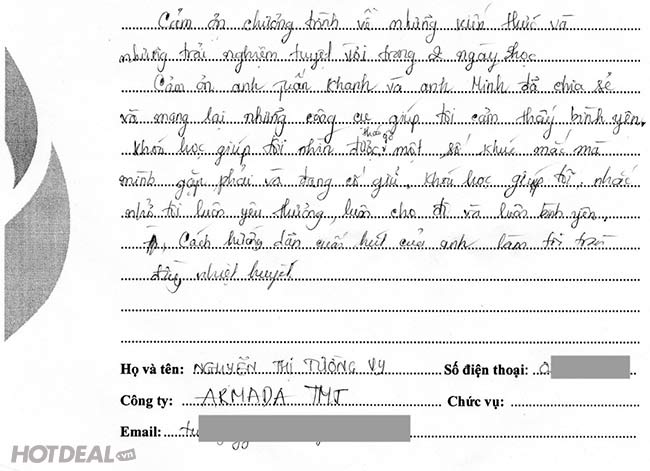 Cảm ơn chương trình về những kiến thức và
những trải nghiệm tuyệt vời trong 2 ngày học
Cảm ơn anh Tuấn Khanh và anh Minh đã chia sẻ
và mang lại những công cụ giúp tôi cảm thấy bình yên.
Khóa học giúp tôi nhận được tháo gỡ một số khúc mắc mà
mình gặp phải và đang cố giữ. Khóa học giúp tôi, nhắc
nhở tôi luôn yêu thương, luôn cho đi và luôn bình yên.
Cách hướng dẫn cuốn hút của anh làm tôi tràn
đầy nhiệt huyết
Họ và tên: NGUYỄN THỊ TƯỜNG VY Số điện thoại: 0
Công ty: ARMADA TMJ Chức vụ:
Email: tu
HOTDEAL.vn